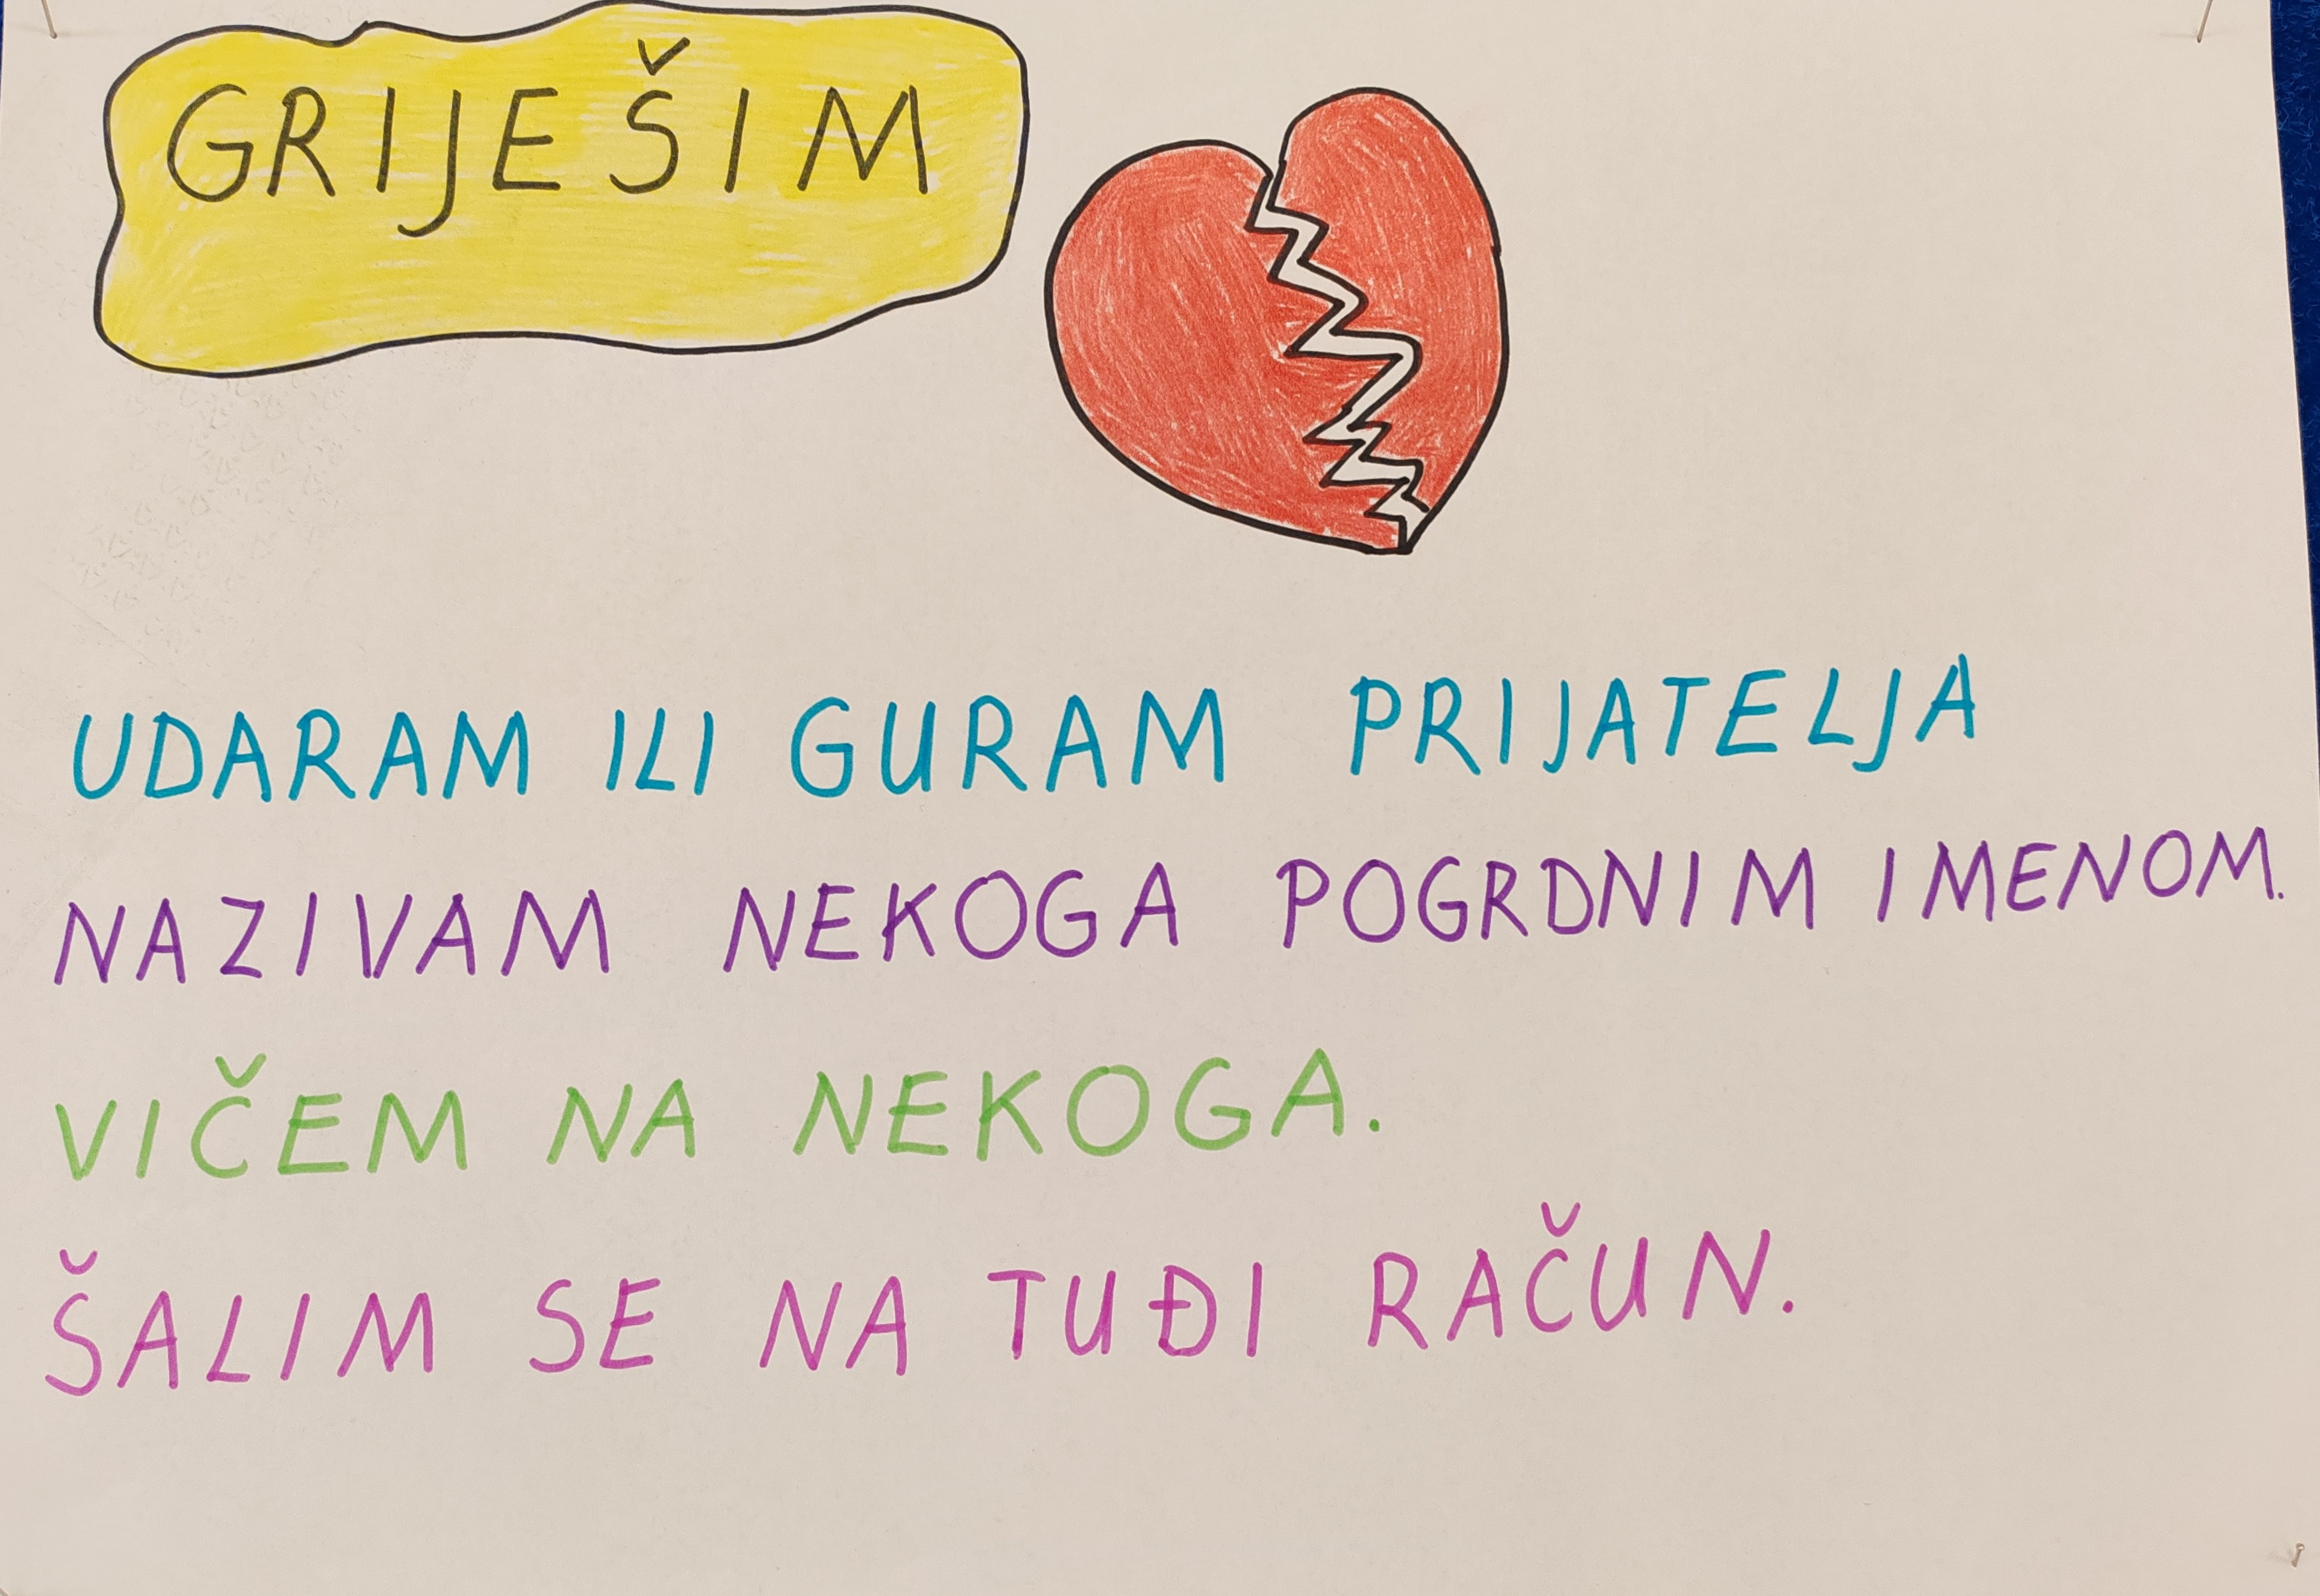 GRIJEŠIM
UDARAM ILI GURAM PRIJATELJA
NAZIVAM NEKOGA POGRDNIM IMENOM.
VIČEM NA NEKOGA.
ŠALIM SE NA TUĐI RAČUN.